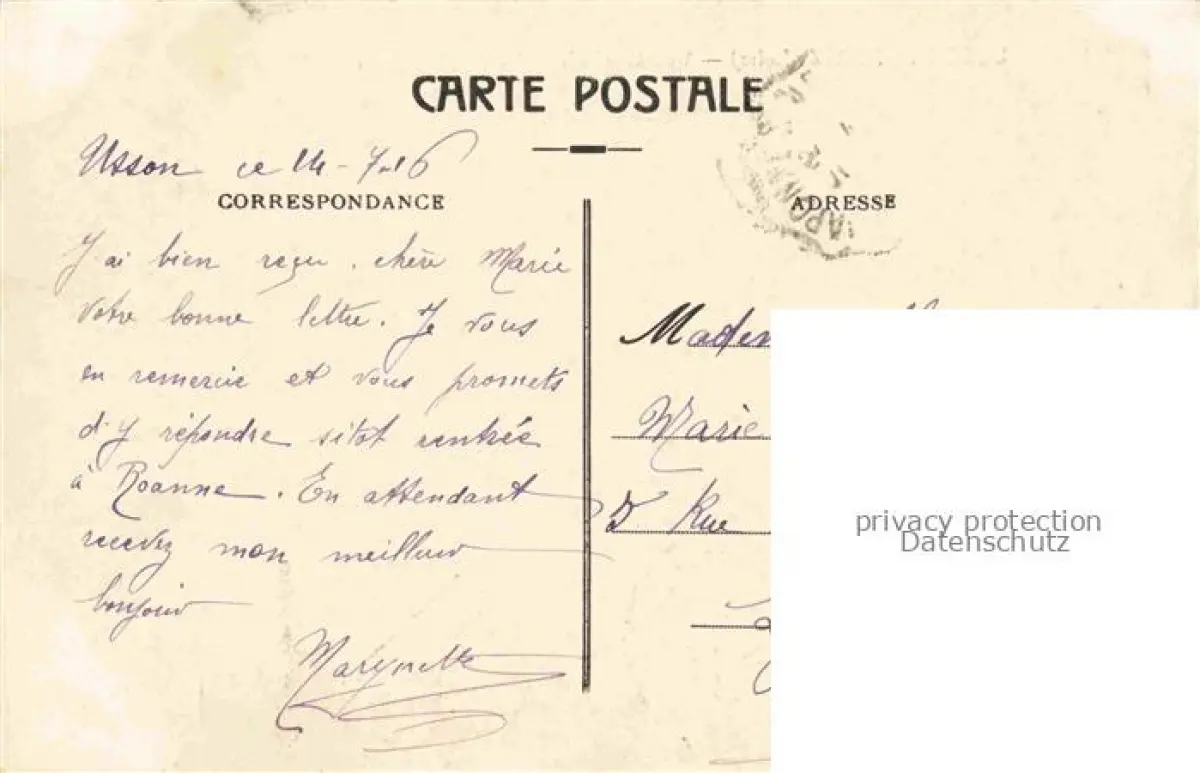 CARTE POSTALE
Usson ce 14-7-16
CORRESPONDANCE
J'ai bien reçu, chère Marie
votre bonne lettre. Je vous
en remercie et vous promets
d'y répondre sitot rentrée
à Roanne. En attendant
recevez mon meilleur
bonjour
ADRESSE
Marie
Rue
privacy protection
Datenschutz